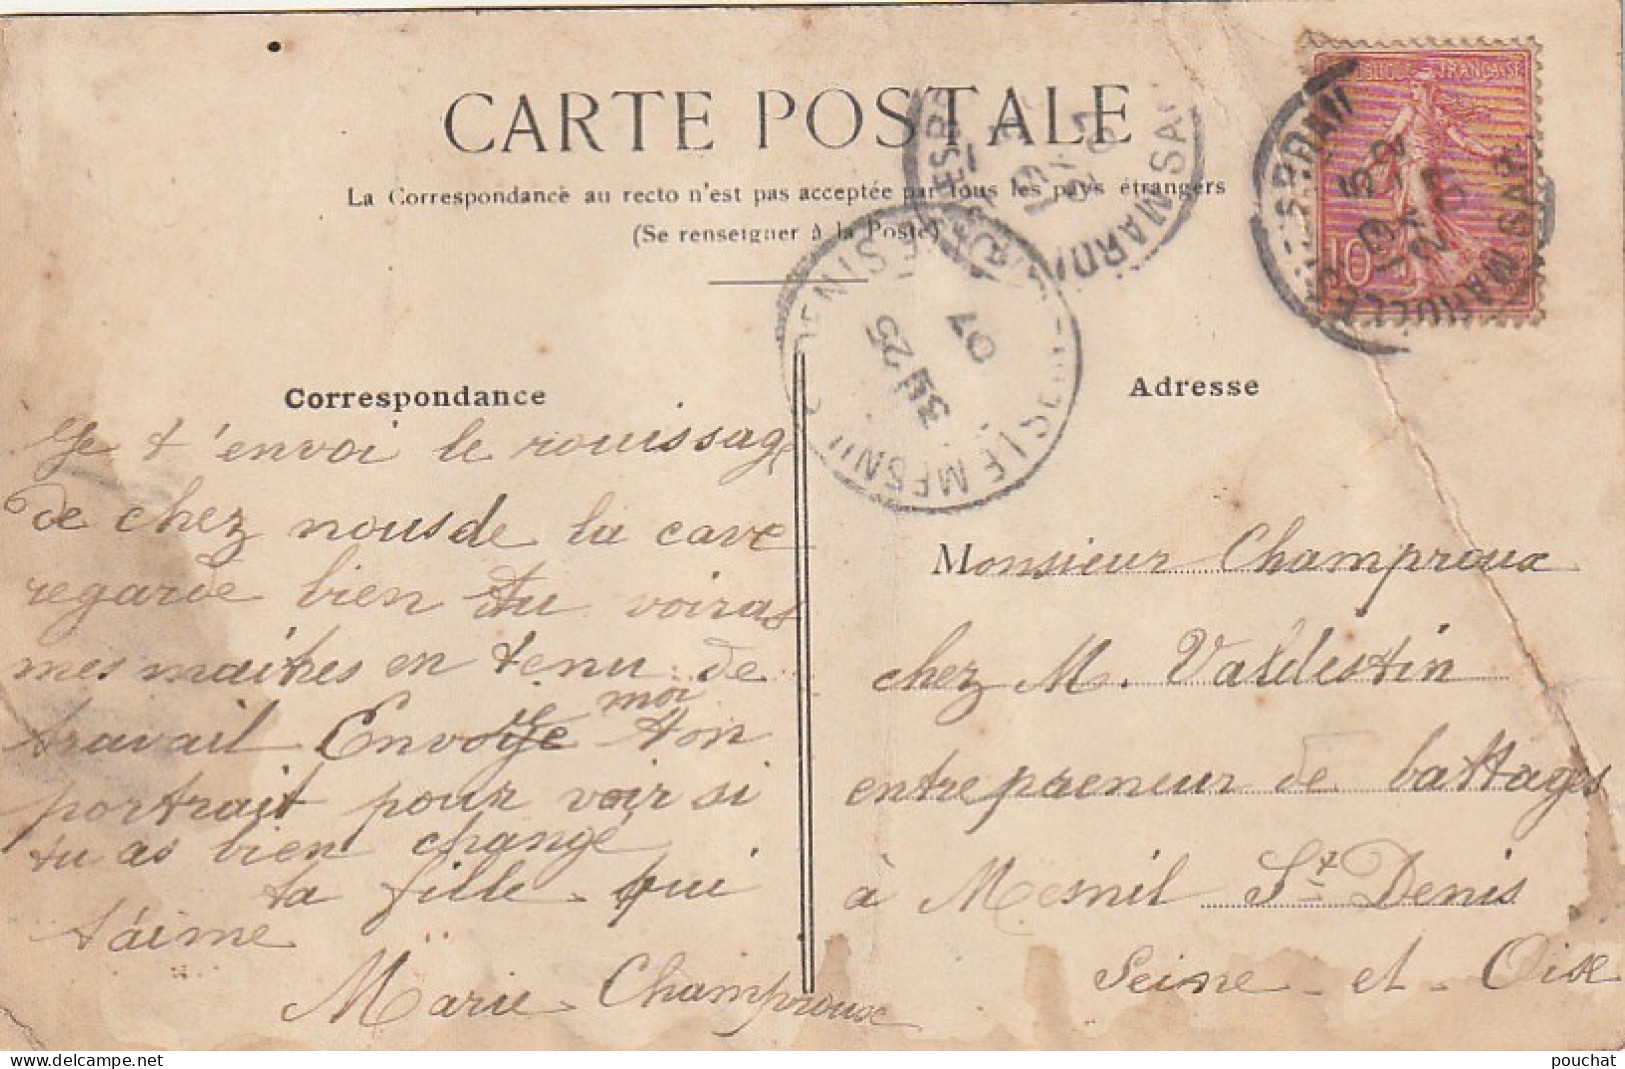 CARTE POSTALE
La Correspondance au recto n'est pas acceptée par tous les pays étrangers
(Se renseigner à la Poste)
RÉPUBLIQUE FRANÇAISE
10
Correspondance
Je t'envoi le rouissage
de chez nous de la cave
regarde bien tu voiras
mes maitres en tenu de
travail Envoye moi ton
portrait pour voir si
tu as bien change
ta fille qui
t'aime
Marie Champroux
Adresse
Monsieur Champroux
chez M. Valdestin
entrepreneur de battages
à Mesnil St Denis
Seine et Oise
LE MESNIL ST DENIS
25
07
pouchat
www.delcampe.net